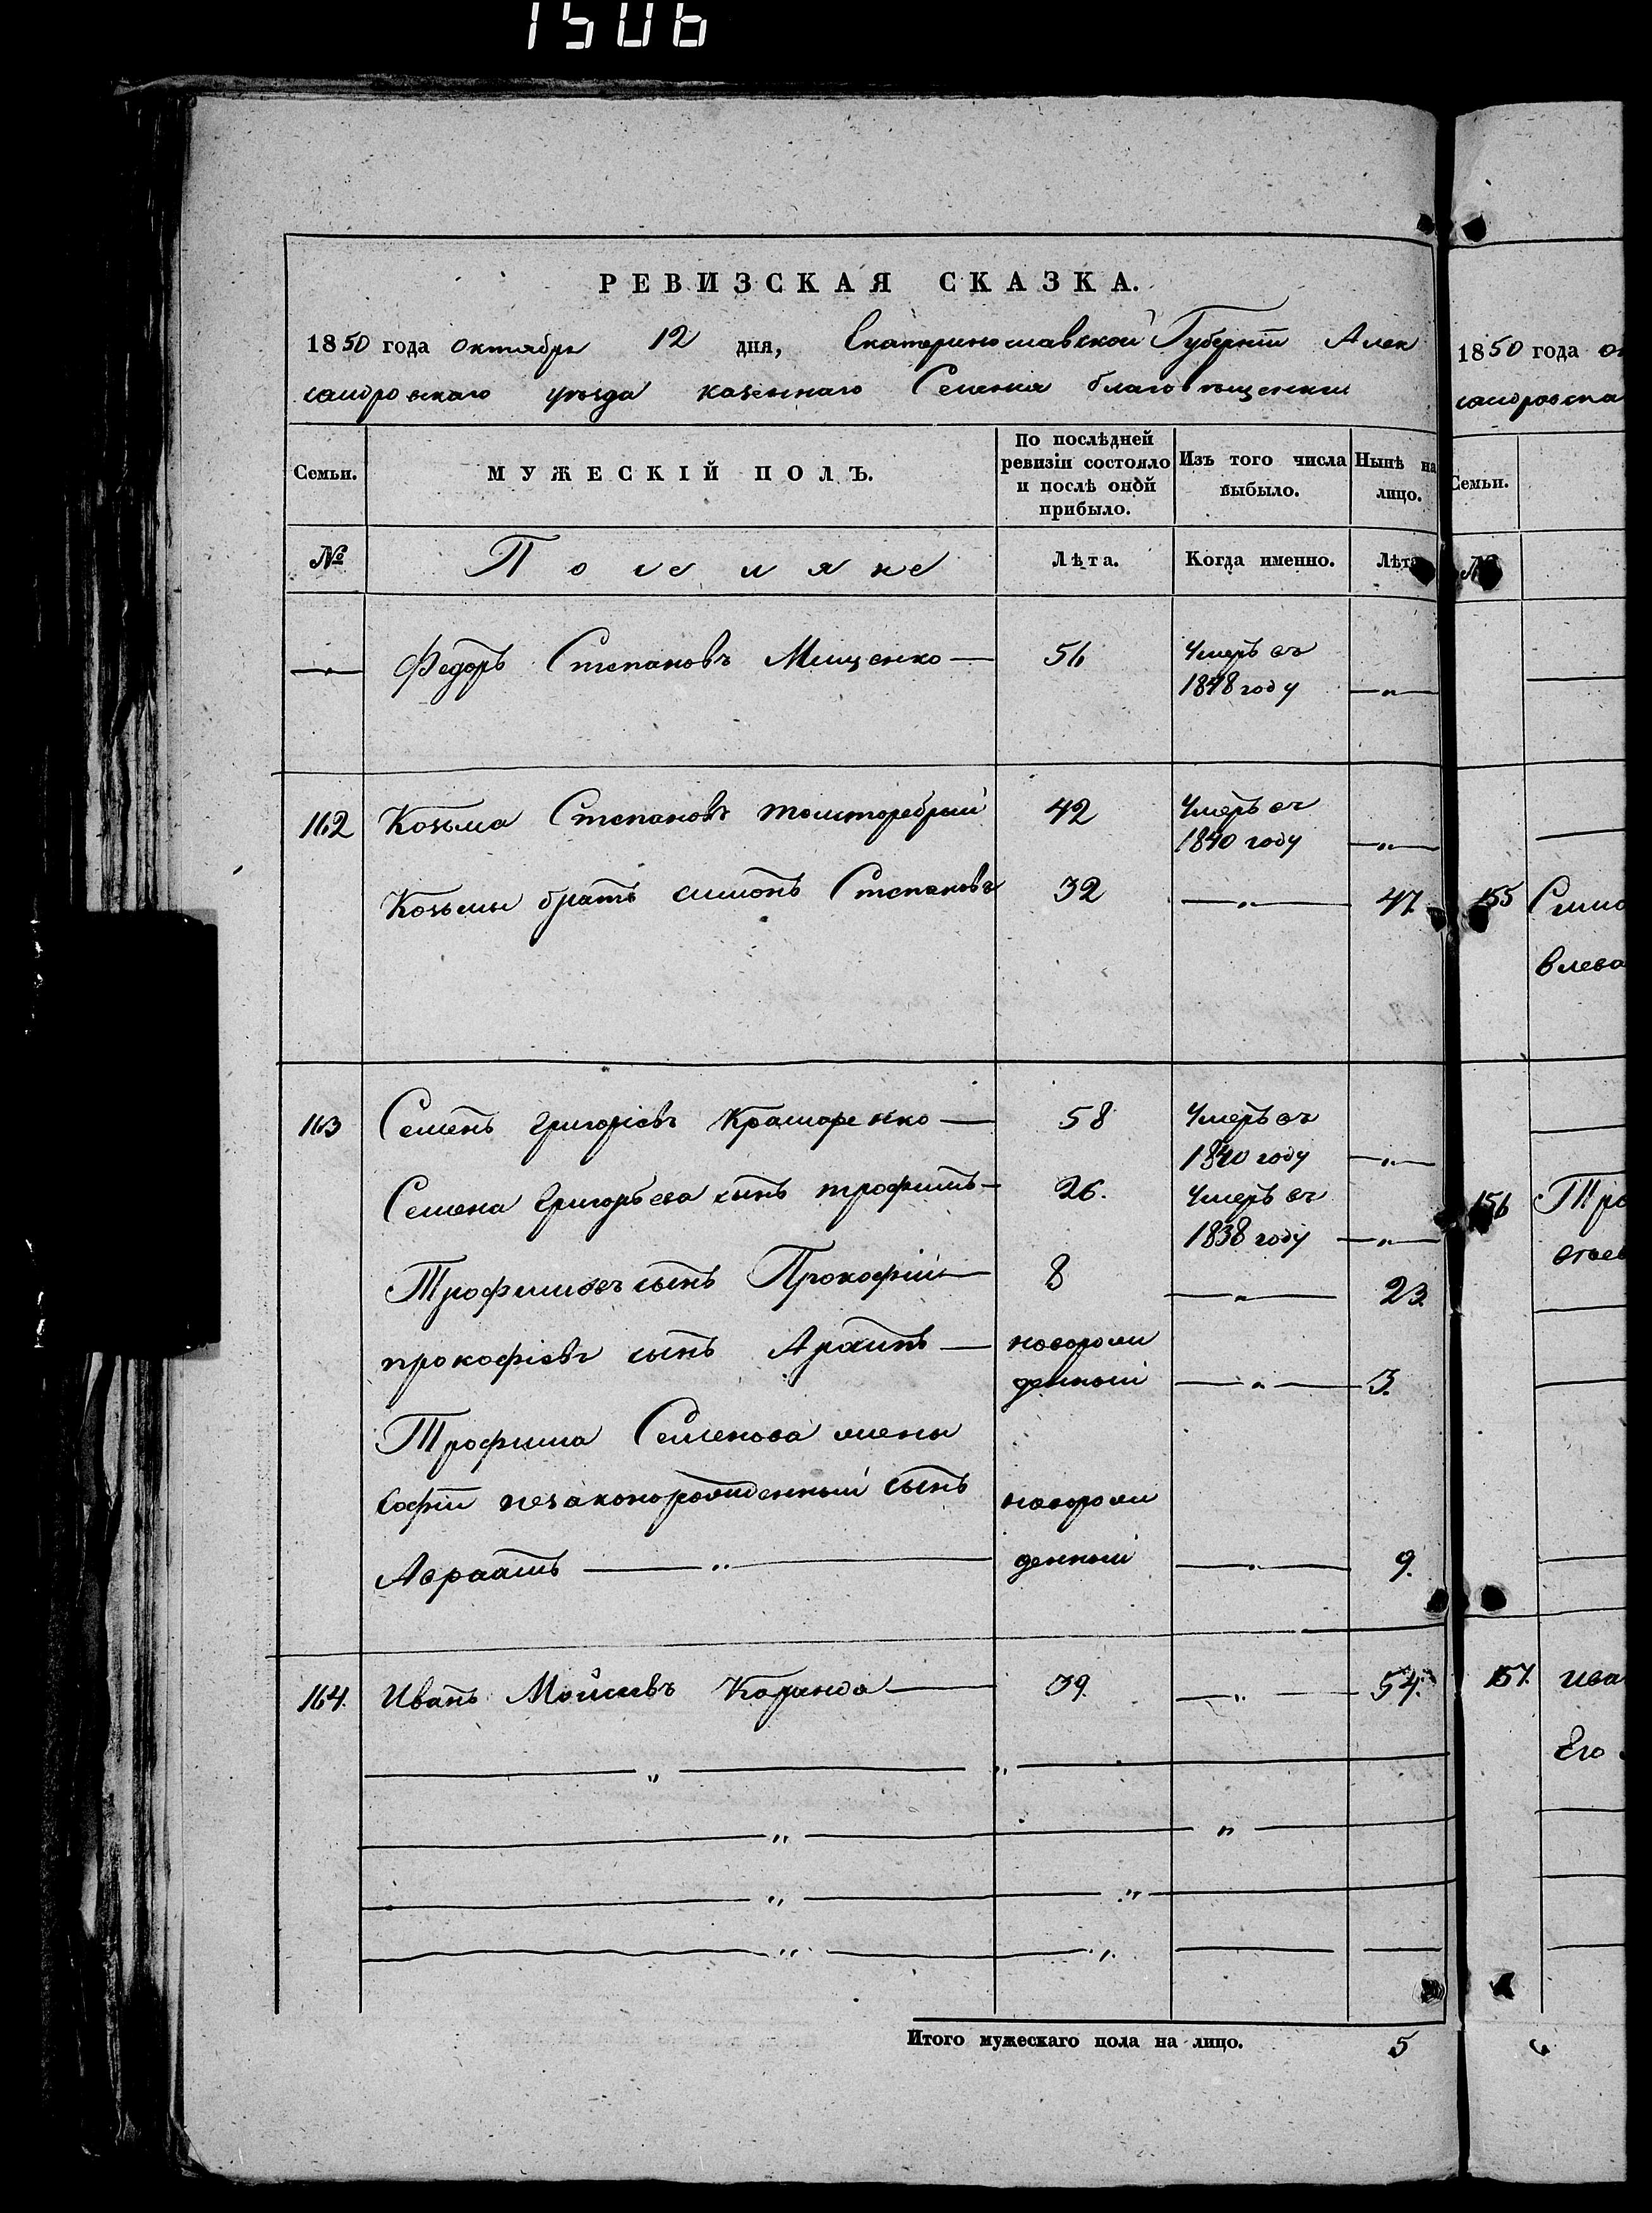 1506
РЕВИЗСКАЯ СКАЗКА.
1850 года октября 12 дня, Екатеринославской Губерніи Алек
сандровскаго уѣзда казеннаго Селенія благовѣщенки
Семьи.
МУЖЕСКІЙ ПОЛЪ.
По послѣдней ревизіи состояло и послѣ оной прибыло.
Изъ того числа выбыло.
Нынѣ на лицо.
№
Поселяне
Лѣта.
Когда именно.
Лѣта
Федоръ Степановъ Мищенко — 56 Умеръ въ
1848 году — „ —
162 Козьма Степановъ толсторебрый 42 Умеръ въ
1840 году — „ —
Козьмы братъ симонъ Степановъ 32 — „ — 47.
163 Семенъ григоріевъ Крамаренко — 58 Умеръ въ
1840 году — „ —
Семена Григорьева сынъ трофимъ — 26. Умеръ въ
1838 году — „ —
Трофимовъ сынъ Прокофій — 8 — „ — 23.
прокофіевъ сынъ —новорож
денный — „ — 3.
Трофима Семенова жены
софіи незаконорожденный сынъ новорож
Авраамъ — „ — денный — „ — 9.
164. Иванъ Моисеевъ Коранда — 39. — „ — 54.
Итого мужескаго пола на лицо. 5
1850 года
Семьи.
№
155
156
157. ива
Его